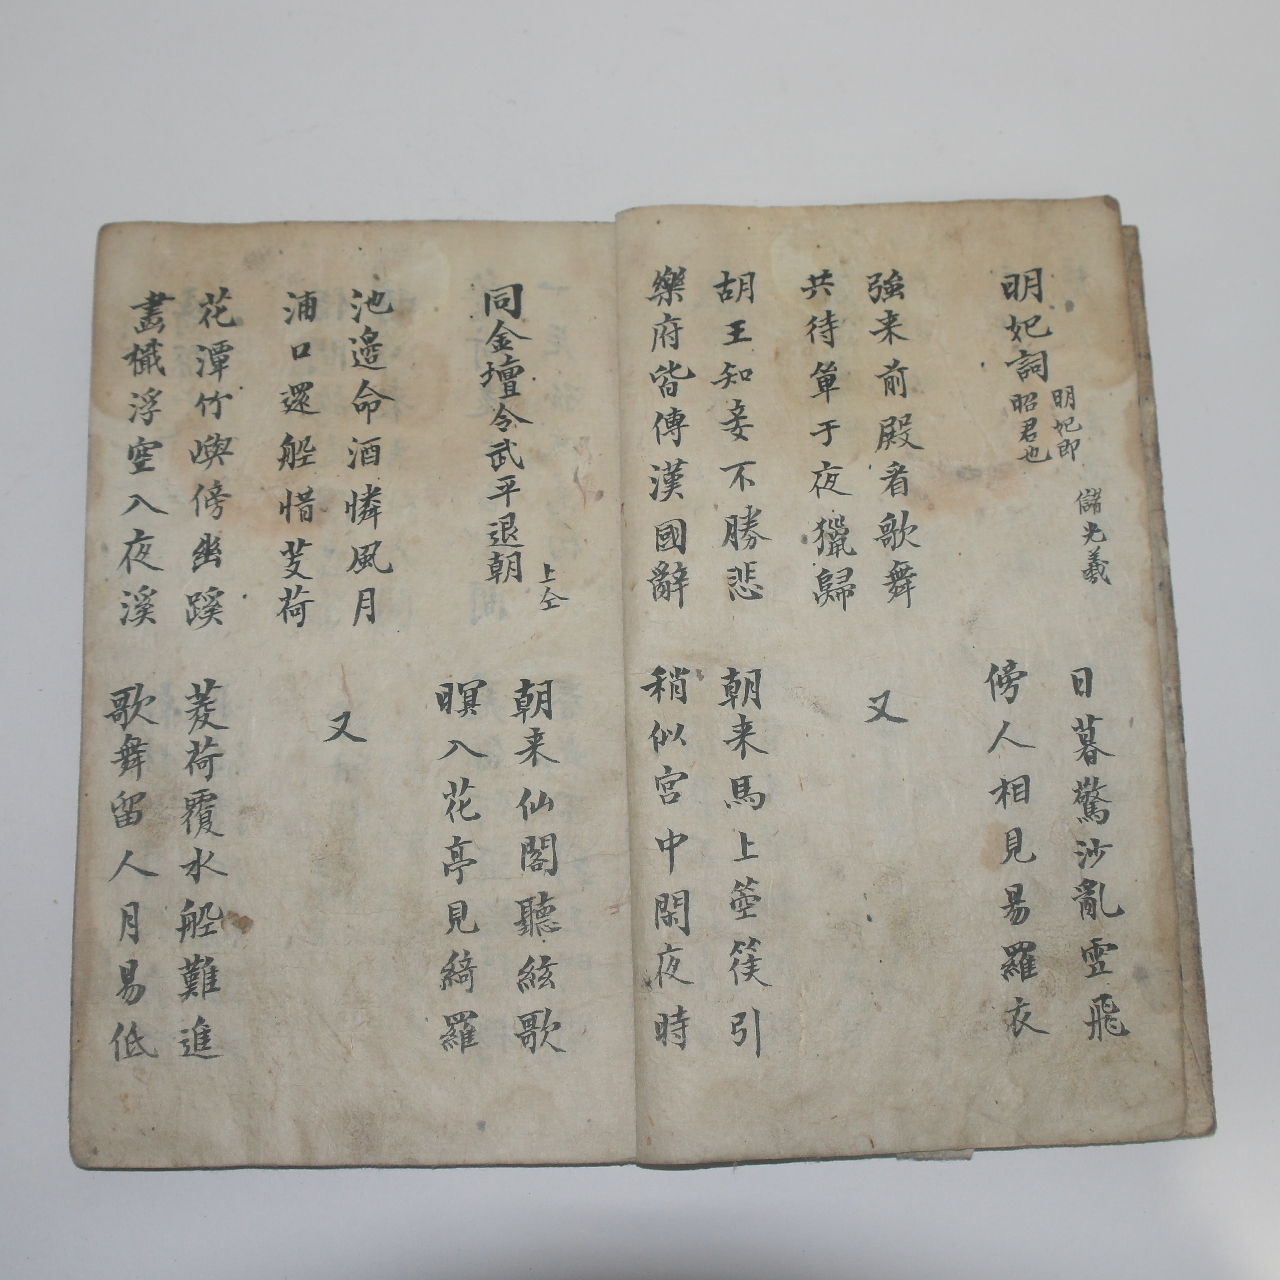 明妃詞 明妃即昭君也 儲光羲
日暮驚沙亂雪飛
傍人相見易羅衣
強来前殿看歌舞
共待單于夜獵歸
又
胡王知妾不勝悲
樂府皆傳漢國辭
朝来馬上箜篌引
稍似宮中閑夜時
同金壇令武平退朝 上仝
朝来仙閣聽絃歌
暝入花亭見綺羅
池邊命酒憐風月
浦口還船惜芰荷
又
花潭竹嶼傍幽蹊
畫檝浮空入夜溪
菱荷覆水船難進
歌舞留人月易低